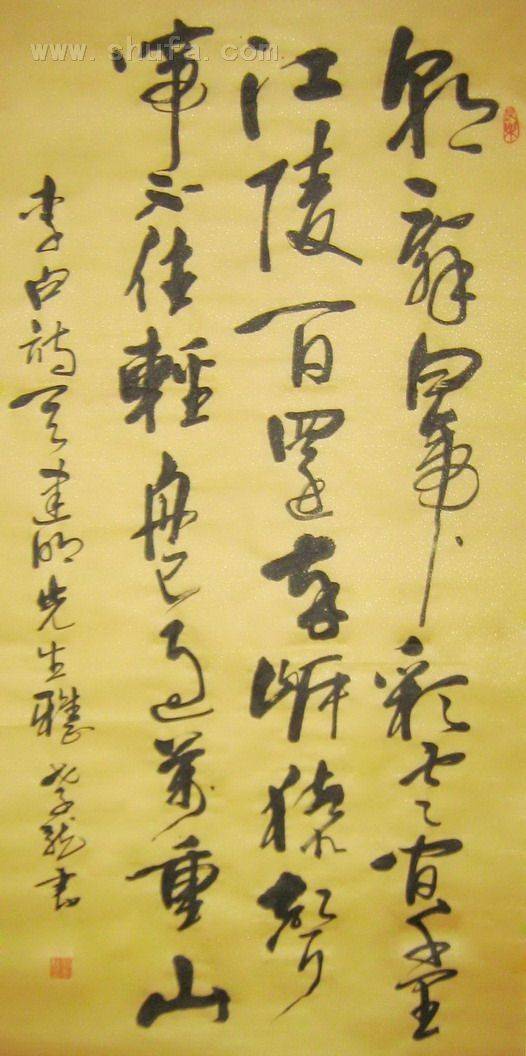 朝辭白帝彩云間千里
江陵一日還兩岸猿聲
啼不住輕舟已過萬重山
李白詩 建明先生雅 龍書
www.shufa.com